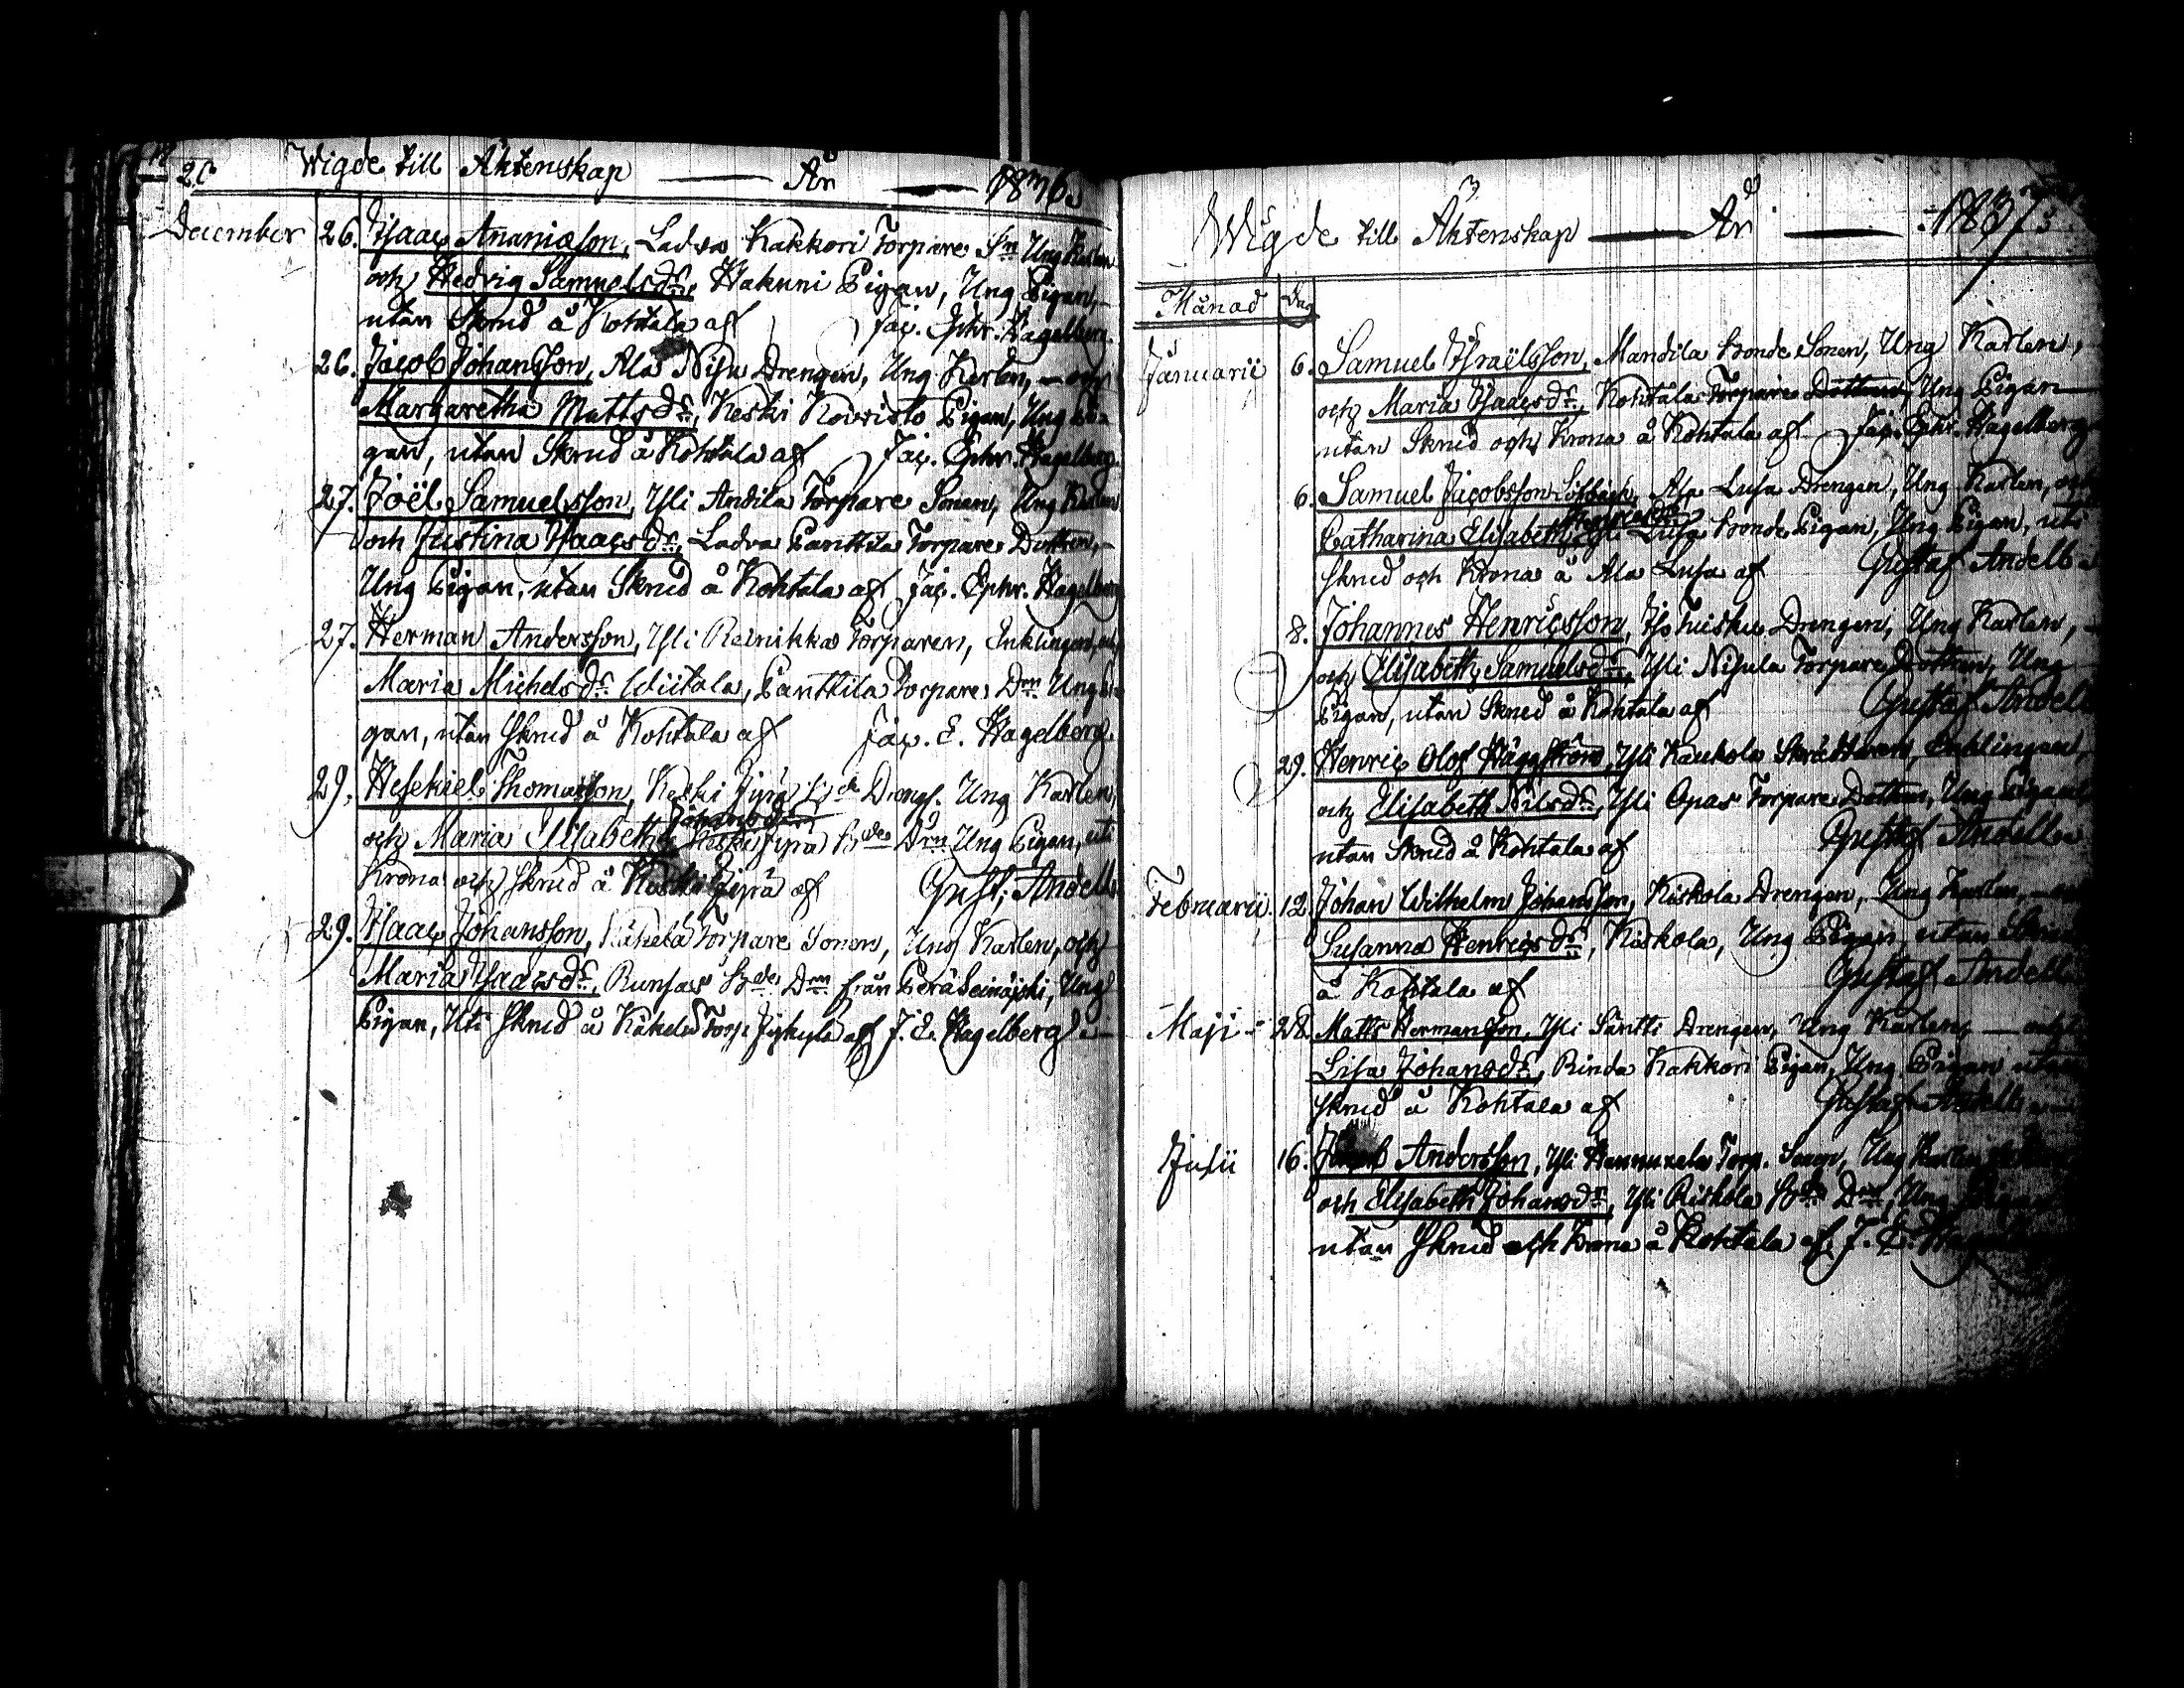 20 Wigde till Äktenskap — År — 1836.
December 26. Isaac Ananiæson, Ladva Kakkori Torpare Sn Ung Karlen
och Hedvig Samuelsdr, Hakuni Pigan, Ung Pigan,
utan Skrud å Kohtala af Jac. Ephr. Hagelberg.
26. Jacob Johansson, Ala Nisu Drengen, Ung Karlen, — och
Margaretha Mattsdr, Keski Koivisto Pigan, Ung Pi-
gan, utan Skrud å Kohtala af Jac. Ephr. Hagelberg.
27. Joël Samuelsson, Yli Andila Torpare Sonen, Ung Karlen
och Justina Isaacsdr, Ladva Panttila Torpare Dottren,
Ung Pigan, utan Skrud å Kohtala af Jac. Ephr. Hagelberg
27. Herman Andersson, Yli Reinikka Torparen, Enklingen, och
Maria Michelsdr Wiitala, Panttila Torpare Drn Ung Pi-
gan, utan Skrud å Kohtala af Jac. E. Hagelberg.
29. Hesekiel Thomasson, Keski Jyrä Drengs. Ung Karlen,
Johansdr
och Maria Elisabeth Keski Jyrä Bde Drn Ung Pigan, uti
Krona och Skrud å Keski Jyrä af Gust. Andell
29. Isaac Johansson, Käkelä Torpare Sonen, Ung Karlen, och
Maria Isaacsdr, Runsas Bde Drn från Peräseinäjoki, Ung
Pigan, Uti Skrud å Käkelä Torp af J. E. Hagelberg
Wigde till Äktenskap — År — 1837.
Månad Dag
Januarii 6. Samuel Israëlsson, Mandila Bonde Sonen, Ung Karlen,
och Maria Isaacsdr, Kohtala Torpare Dottren, Ung Pigan
utan Skrud och Krona å Kohtala af Jac. Ephr. Hagelberg
6. Samuel Jacobsson Ala Lusa Drengen, Ung Karlen, och
Catharina Elisabeth Lusa Bonde Pigan, Ung Pigan, uti
Skrud och Krona å Ala Lusa af Gustaf Andell
8. Johannes Henricsson, Drengen, Ung Karlen,
och Elisabeth Samuelsdr, Yli Nisula Torpare Dottren, Ung
Pigan, utan Skrud å Kohtala af Gustaf Andell
29. Henric Olof Häggström, Yli Kaukola Skräddaren, Enklingen,
och Elisabeth Nilsdr, Yli Opas Torpare Dottren, Ung Pigan
utan Skrud å Kohtala af Gustaf Andell
Februarii 12. Johan Wilhelm Johansson, Kiskola Drengen, Ung Karlen,
Susanna Henricsdr, Kiskola, Ung Pigan, utan Skrud
å Kohtala af Gustaf Andell
Maji 28. Matts Hermansson, Yli Säntti Drengen, Ung Karlen, — och
Lisa Johansdr, Rinda Kakkori Pigan, Ung Pigan utan
Skrud å Kohtala af Gustaf Andell
Julii 16. Andersson, Yli Hannuxela Torp. Sonen, Ung Karlen
och Elisabeth Johansdr, Yli Riskola Bde Drn, Ung Pigan
utan Skrud och Krona å Kohtala af J. E.